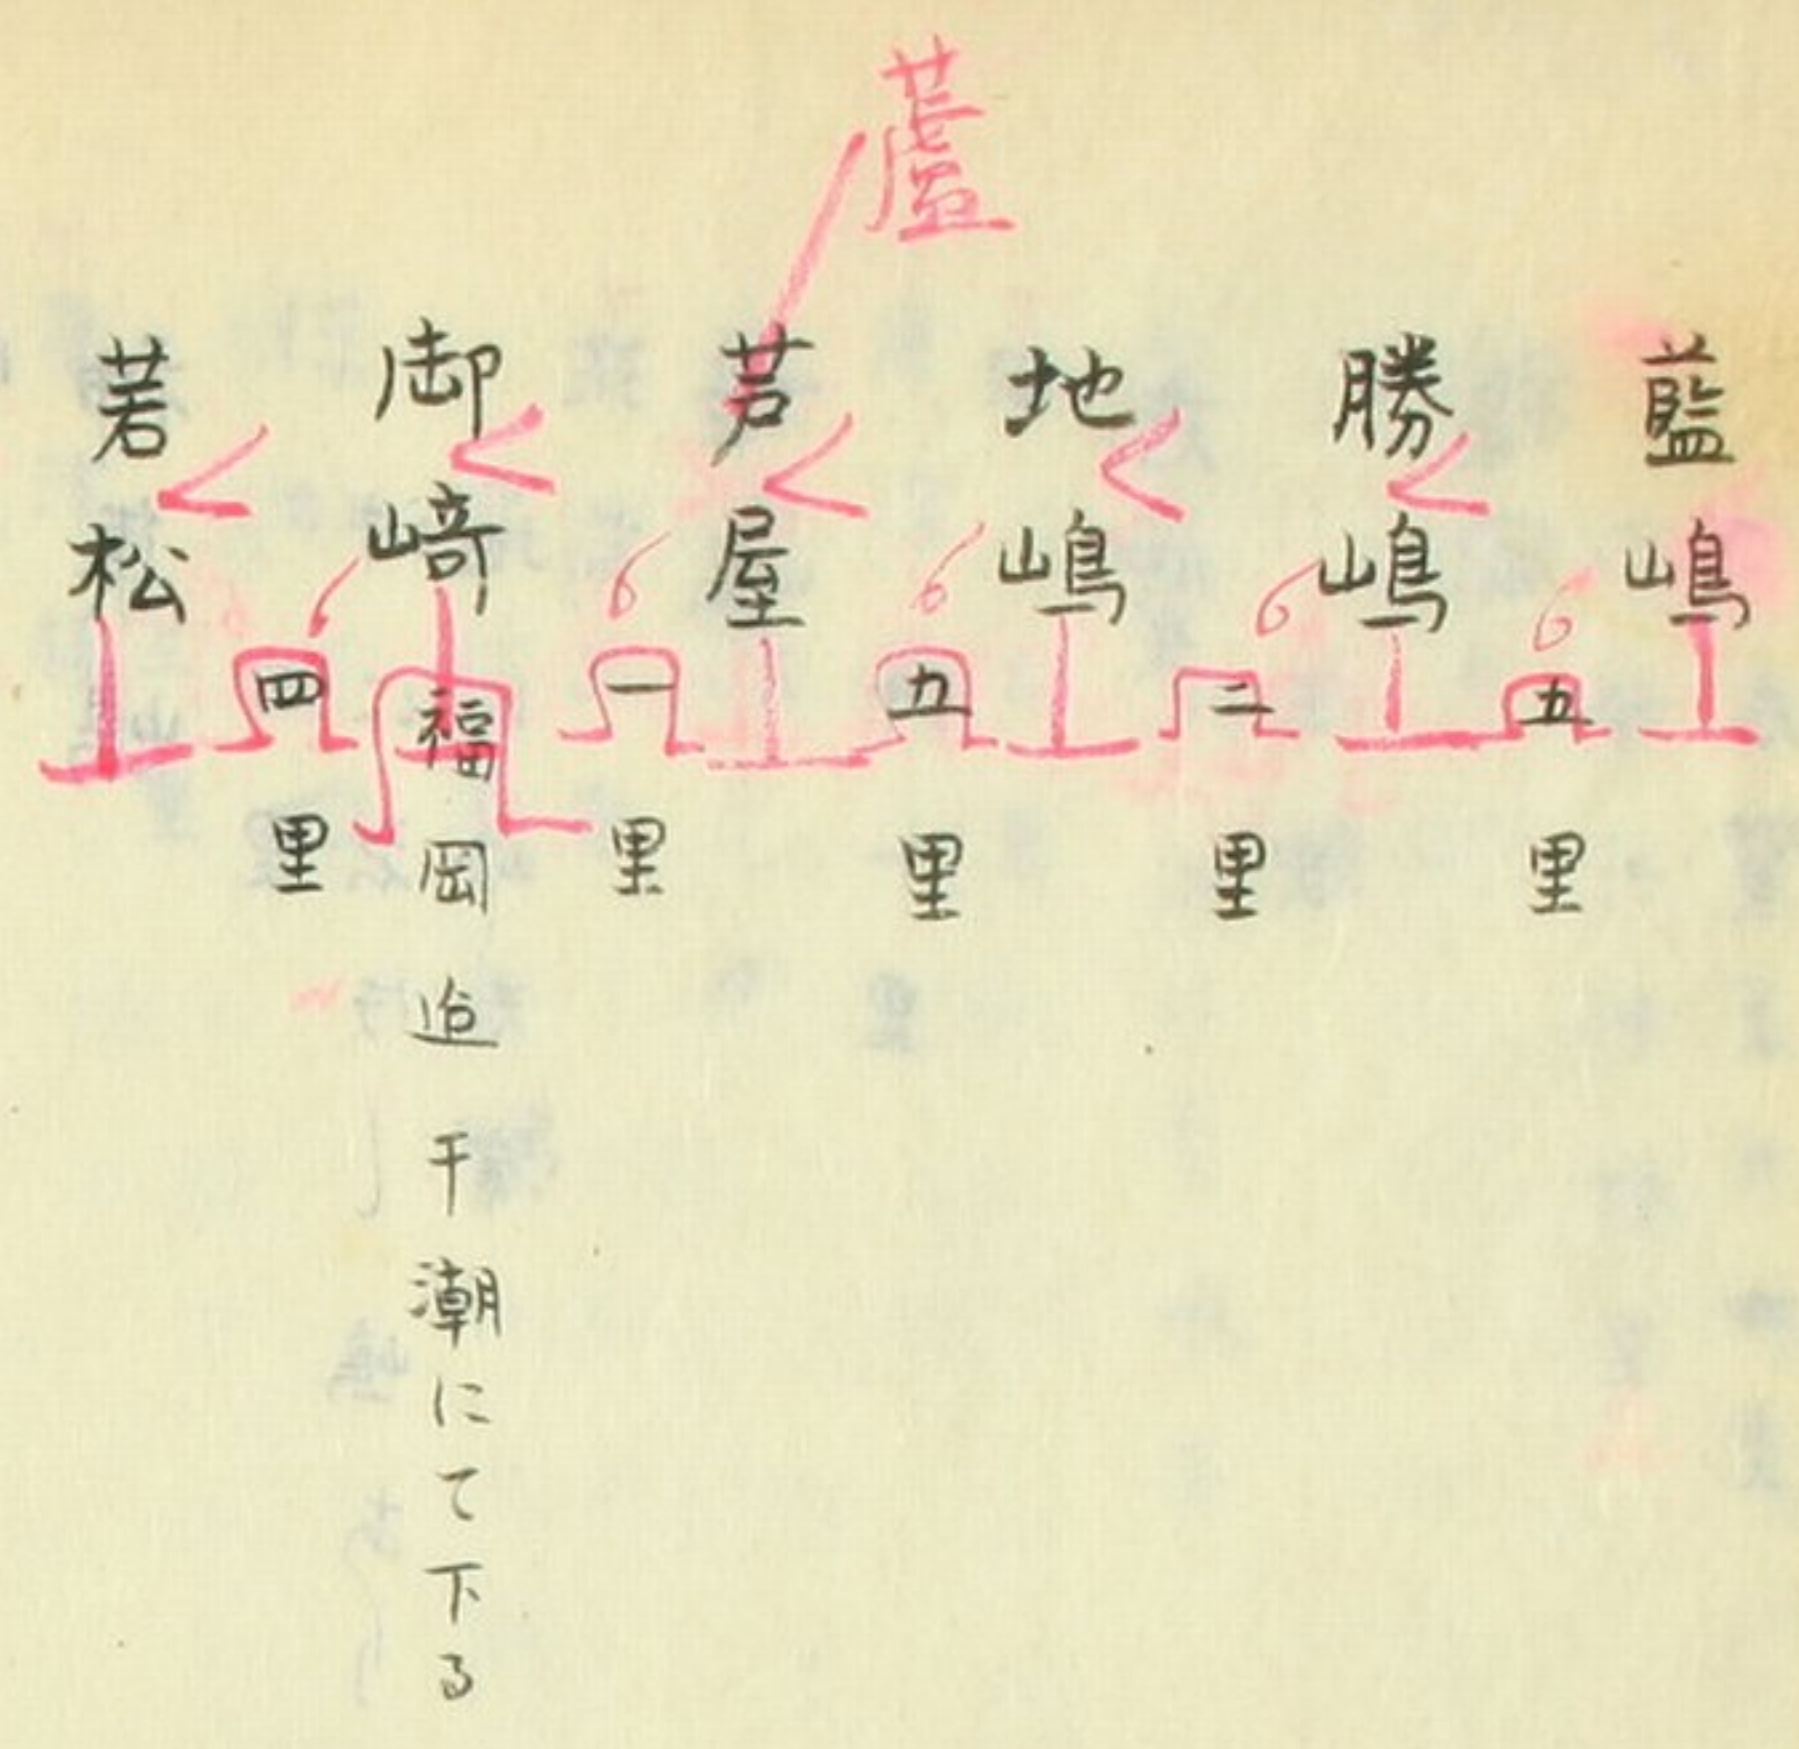 藍嶋
五里
勝嶋
二里
地嶋
五里
蘆
芦屋
一里
御崎
福岡迨干潮にて下る
四里
若松